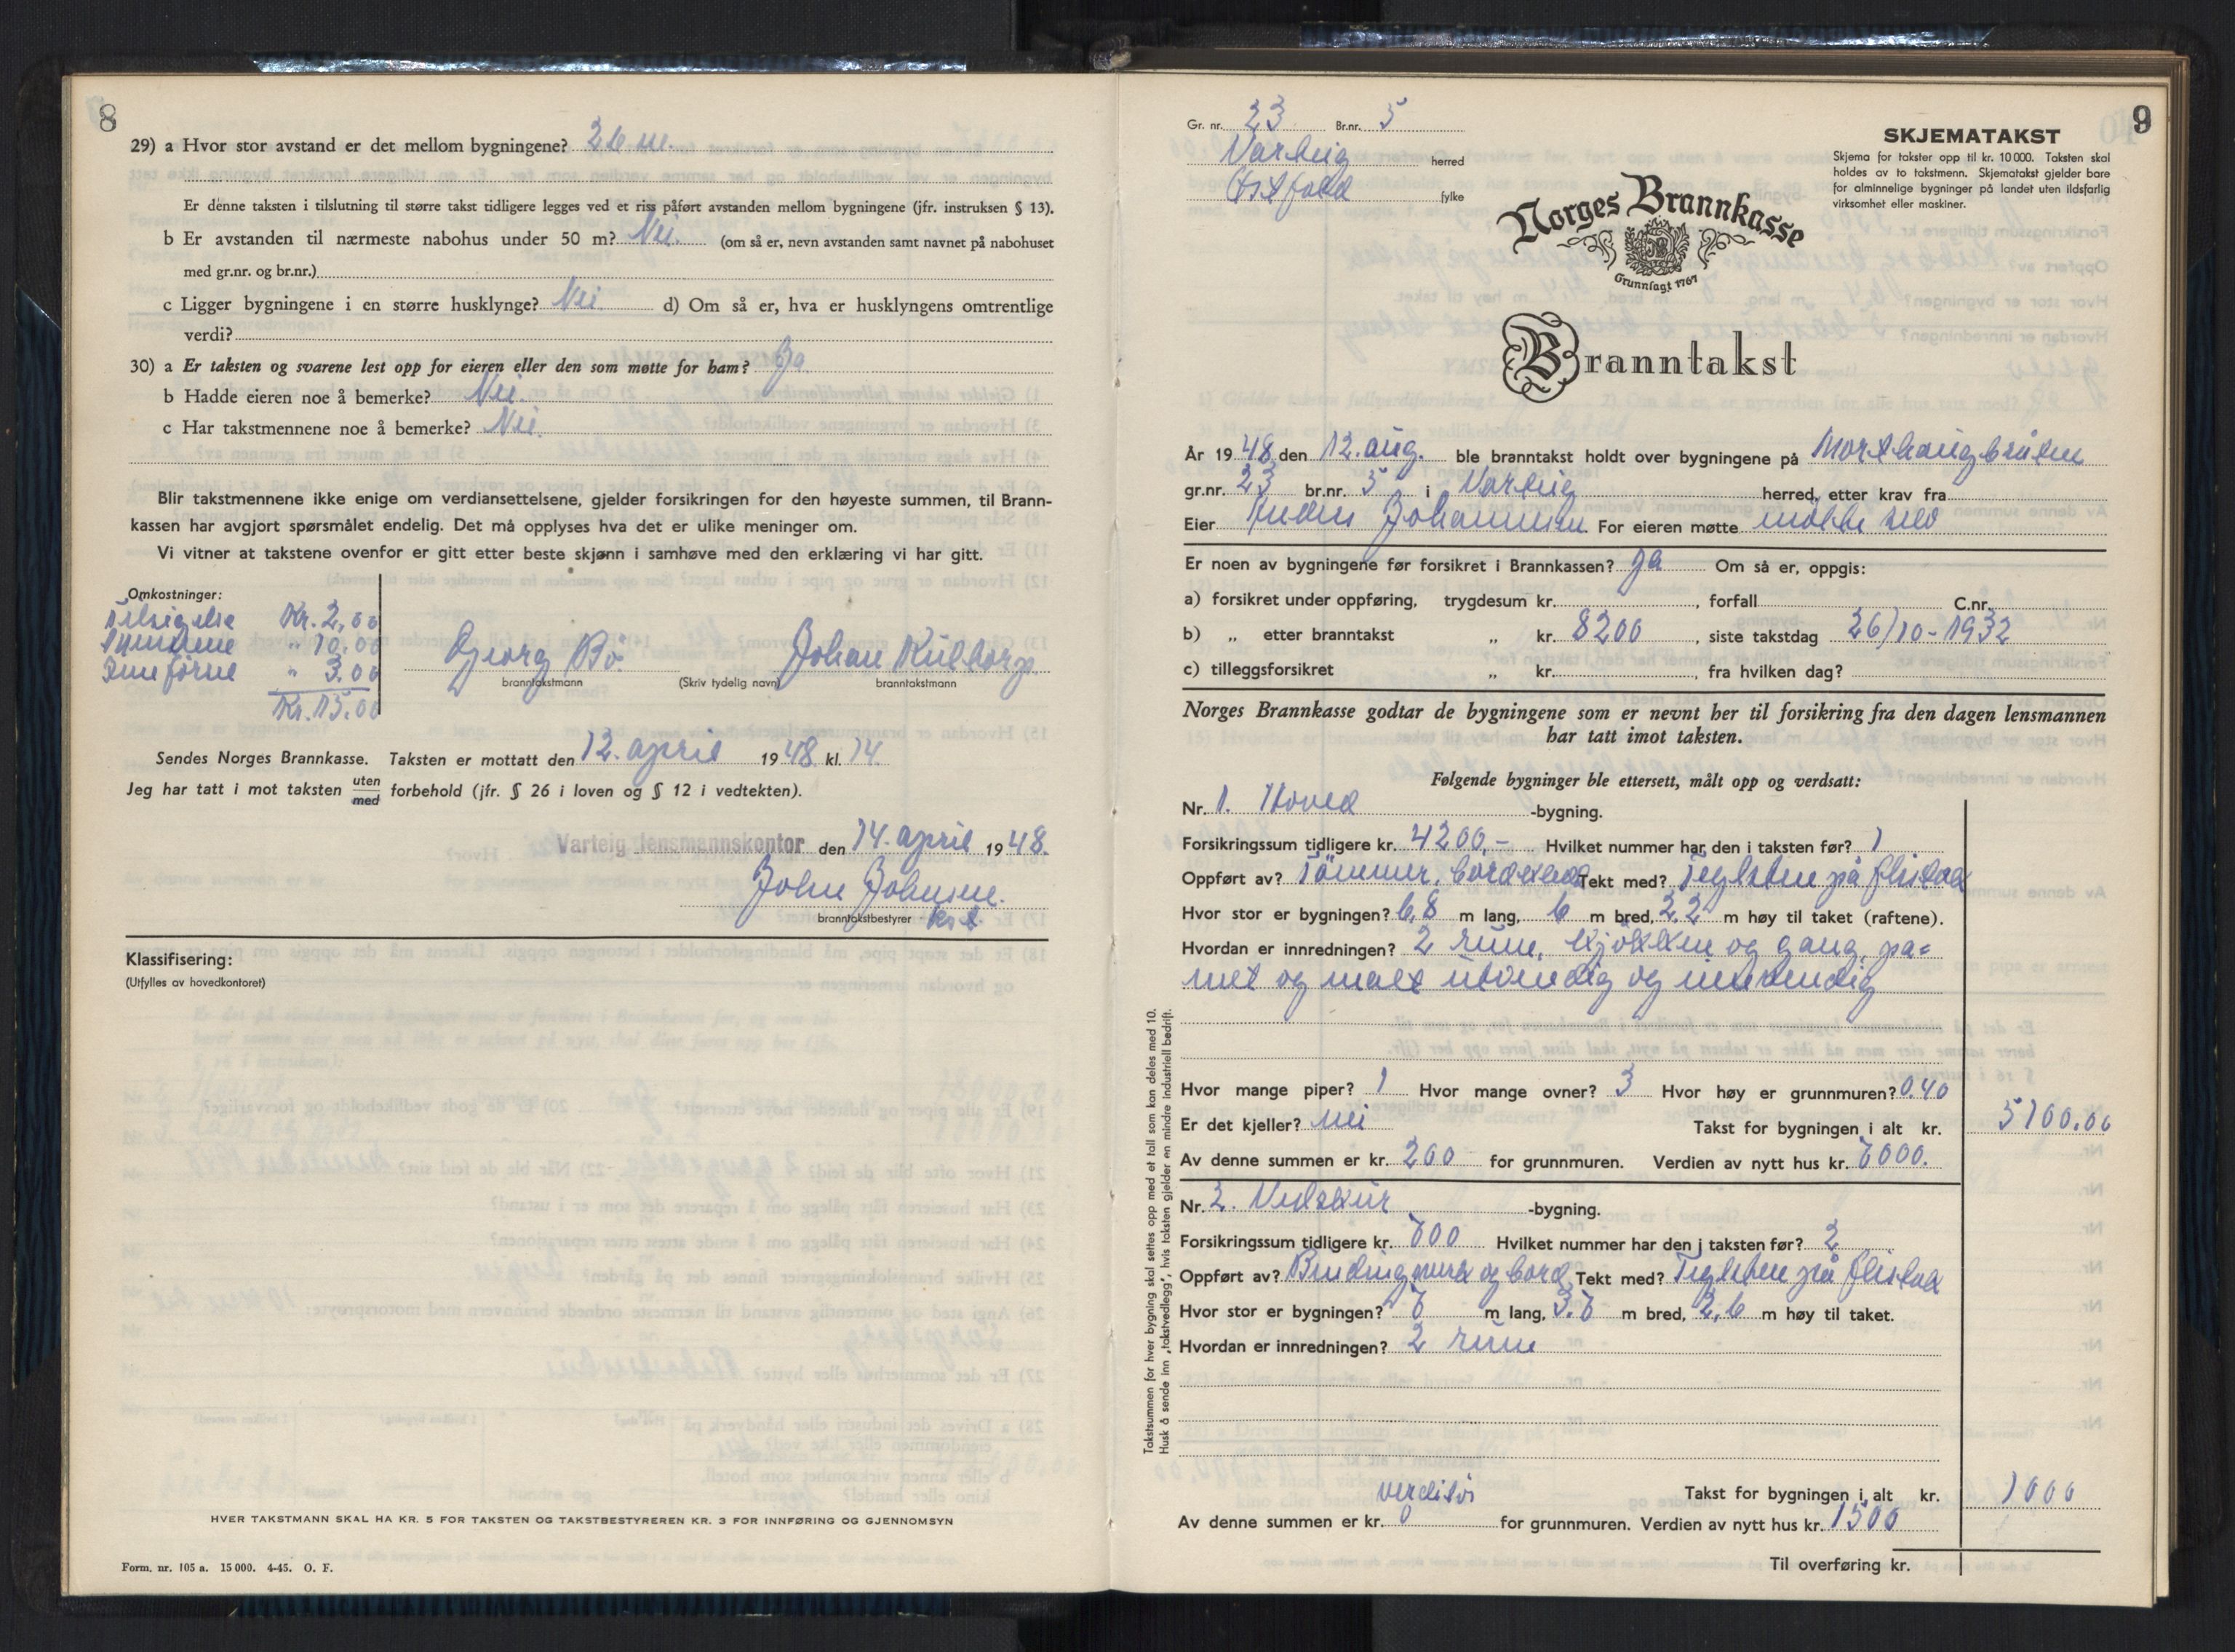 8
29) a Hvor stor avstand er det mellom bygningene? 26 m.
Er denne taksten i tilslutning til større takst tidligere legges ved et riss påført avstanden mellom bygningene (jfr. instruksen § 13).
b Er avstanden til nærmeste nabohus under 50 m? Nei. (om så er, nevn avstanden samt navnet på nabohuset
med gr.nr. og br.nr.)
c Ligger bygningene i en større husklynge? Nei d) Om så er, hva er husklyngens omtrentlige
verdi?
30) a Er taksten og svarene lest opp for eieren eller den som møtte for ham? Ja
b Hadde eieren noe å bemerke? Nei.
c Har takstmennene noe å bemerke? Nei.
Blir takstmennene ikke enige om verdiansettelsene, gjelder forsikringen for den høyeste summen, til Brann-
kassen har avgjort spørsmålet endelig. Det må opplyses hva det er ulike meninger om.
Vi vitner at takstene ovenfor er gitt etter beste skjønn i samhøve med den erklæring vi har gitt.
Omkostninger:
Tilsigelse Kr. 2,00
" 10.00
" 3.00
Kr. 15.00
Georg Bö Johan Kulborg
branntakstmann (Skriv tydelig navn) branntakstmann
Sendes Norges Brannkasse. Taksten er mottatt den 12. april 1948 kl. 14.
Jeg har tatt i mot taksten uten/med forbehold (jfr. § 26 i loven og § 12 i vedtekten).
Varteig lensmannskontor den 14. april 1948.
John Johnsen.
branntakstbestyrer kst.
Klassifisering:
(Utfylles av hovedkontoret)
HVER TAKSTMANN SKAL HA KR. 5 FOR TAKSTEN OG TAKSTBESTYREREN KR. 3 FOR INNFØRING OG GJENNOMSYN
Form. nr. 105 a. 15 000. 4-45. O. F.
9
Gr. nr. 23 Br.nr. 5
Varteig herred
Østfold fylke
SKJEMATAKST
Skjema for takster opp til kr. 10 000. Taksten skal
holdes av to takstmenn. Skjematakst gjelder bare
for alminnelige bygninger på landet uten ildsfarlig
virksomhet eller maskiner.
Norges Brannkasse
Grunnlagt 1767
Branntakst
År 1948 den 12. aug. ble branntakst holdt over bygningene på Morthaugbråten
gr.nr. 23 br.nr. 5 i Varteig herred, etter krav fra
Eier Anders Johannesen For eieren møtte møtte selv
Er noen av bygningene før forsikret i Brannkassen? Ja Om så er, oppgis:
a) forsikret under oppføring, trygdesum kr. , forfall C.nr.
b) „ etter branntakst „ kr. 8200 , siste takstdag 26/10-1932
c) tilleggsforsikret „ kr. , fra hvilken dag?
Norges Brannkasse godtar de bygningene som er nevnt her til forsikring fra den dagen lensmannen
har tatt imot taksten.
Følgende bygninger ble ettersett, målt opp og verdsatt:
Nr. 1. Hoved -bygning.
Forsikringssum tidligere kr. 4200,- Hvilket nummer har den i taksten før? 1
Oppført av? Tömmer, bordkledd Tekt med? Teglsten på flistak
Hvor stor er bygningen? 6,8 m lang, 6 m bred, 2,2 m høy til taket (raftene).
Hvordan er innredningen? 2 rum, kjökken og gang, pa=
nelt og malt utvendig og innvendig
Hvor mange piper? 1 Hvor mange ovner? 3 Hvor høy er grunnmuren? 0.40
Er det kjeller? Nei Takst for bygningen i alt kr. 5100.00
Av denne summen er kr. 200 for grunnmuren. Verdien av nytt hus kr. 7000.
Nr. 2. Vedskur -bygning.
Forsikringssum tidligere kr. 700 Hvilket nummer har den i taksten før? 2
Oppført av? Bindingsverk og bord Tekt med? Teglsten på flistak
Hvor stor er bygningen? 7 m lang, 3.7 m bred, 2,6 m høy til taket.
Hvordan er innredningen? 2 rum
Takst for bygningen i alt kr. 1000
verdilös
Av denne summen er kr. 0 for grunnmuren. Verdien av nytt hus kr. 1500
Til overføring kr.
Takstsummen for hver bygning skal settes opp med et tall som kan deles med 10.
Husk å sende inn „takstvedlegg", hvis taksten gjelder en mindre industriell bedrift.